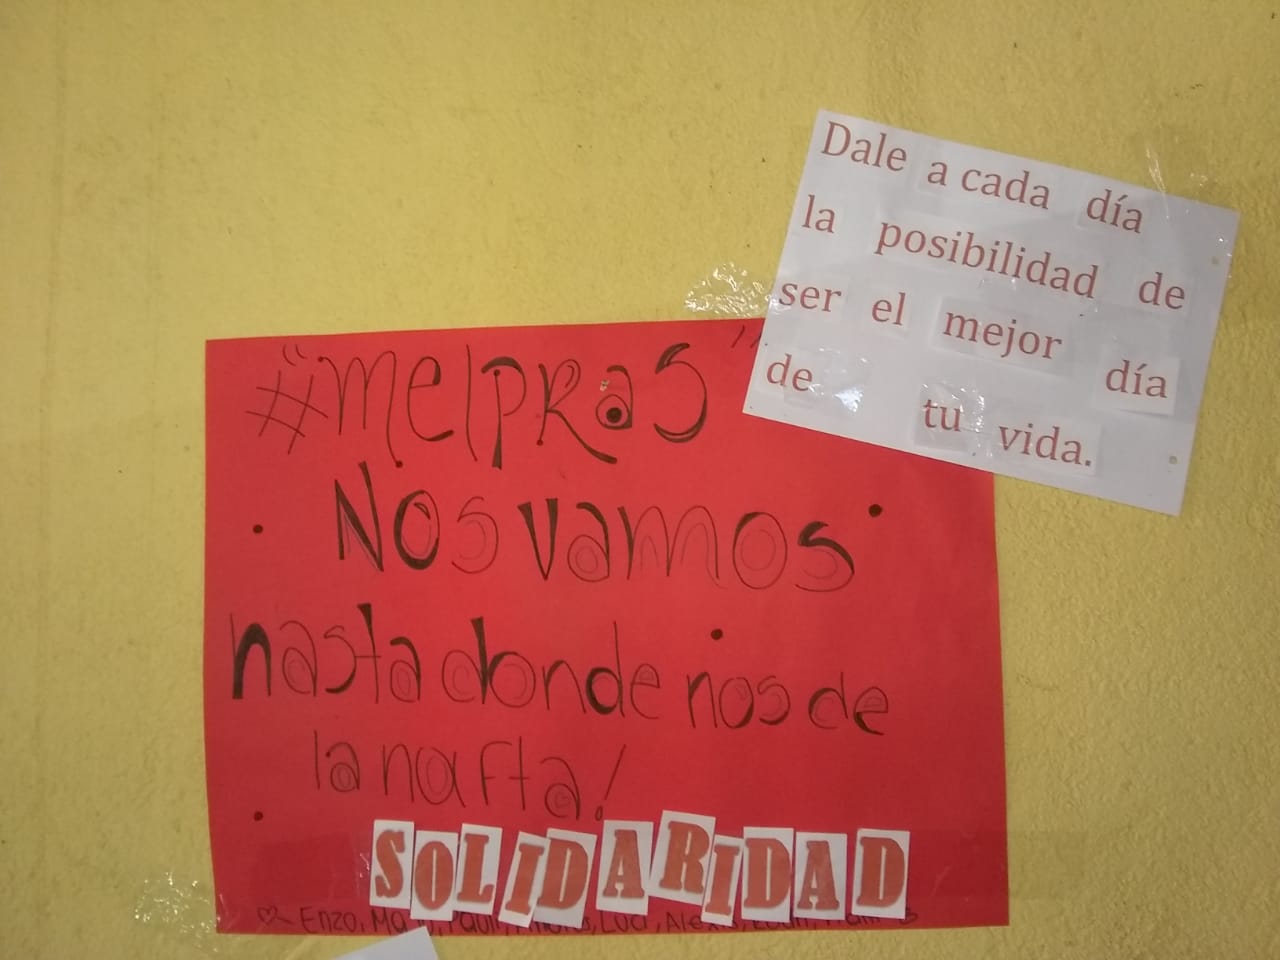 Dale a cada día
la posibilidad de
ser el mejor día
de tu vida.
#"MelPRas"
Nos vamos
hasta donde nos de
la nafta!
SOLIDARIDAD
Enzo, Luci, Alexis,